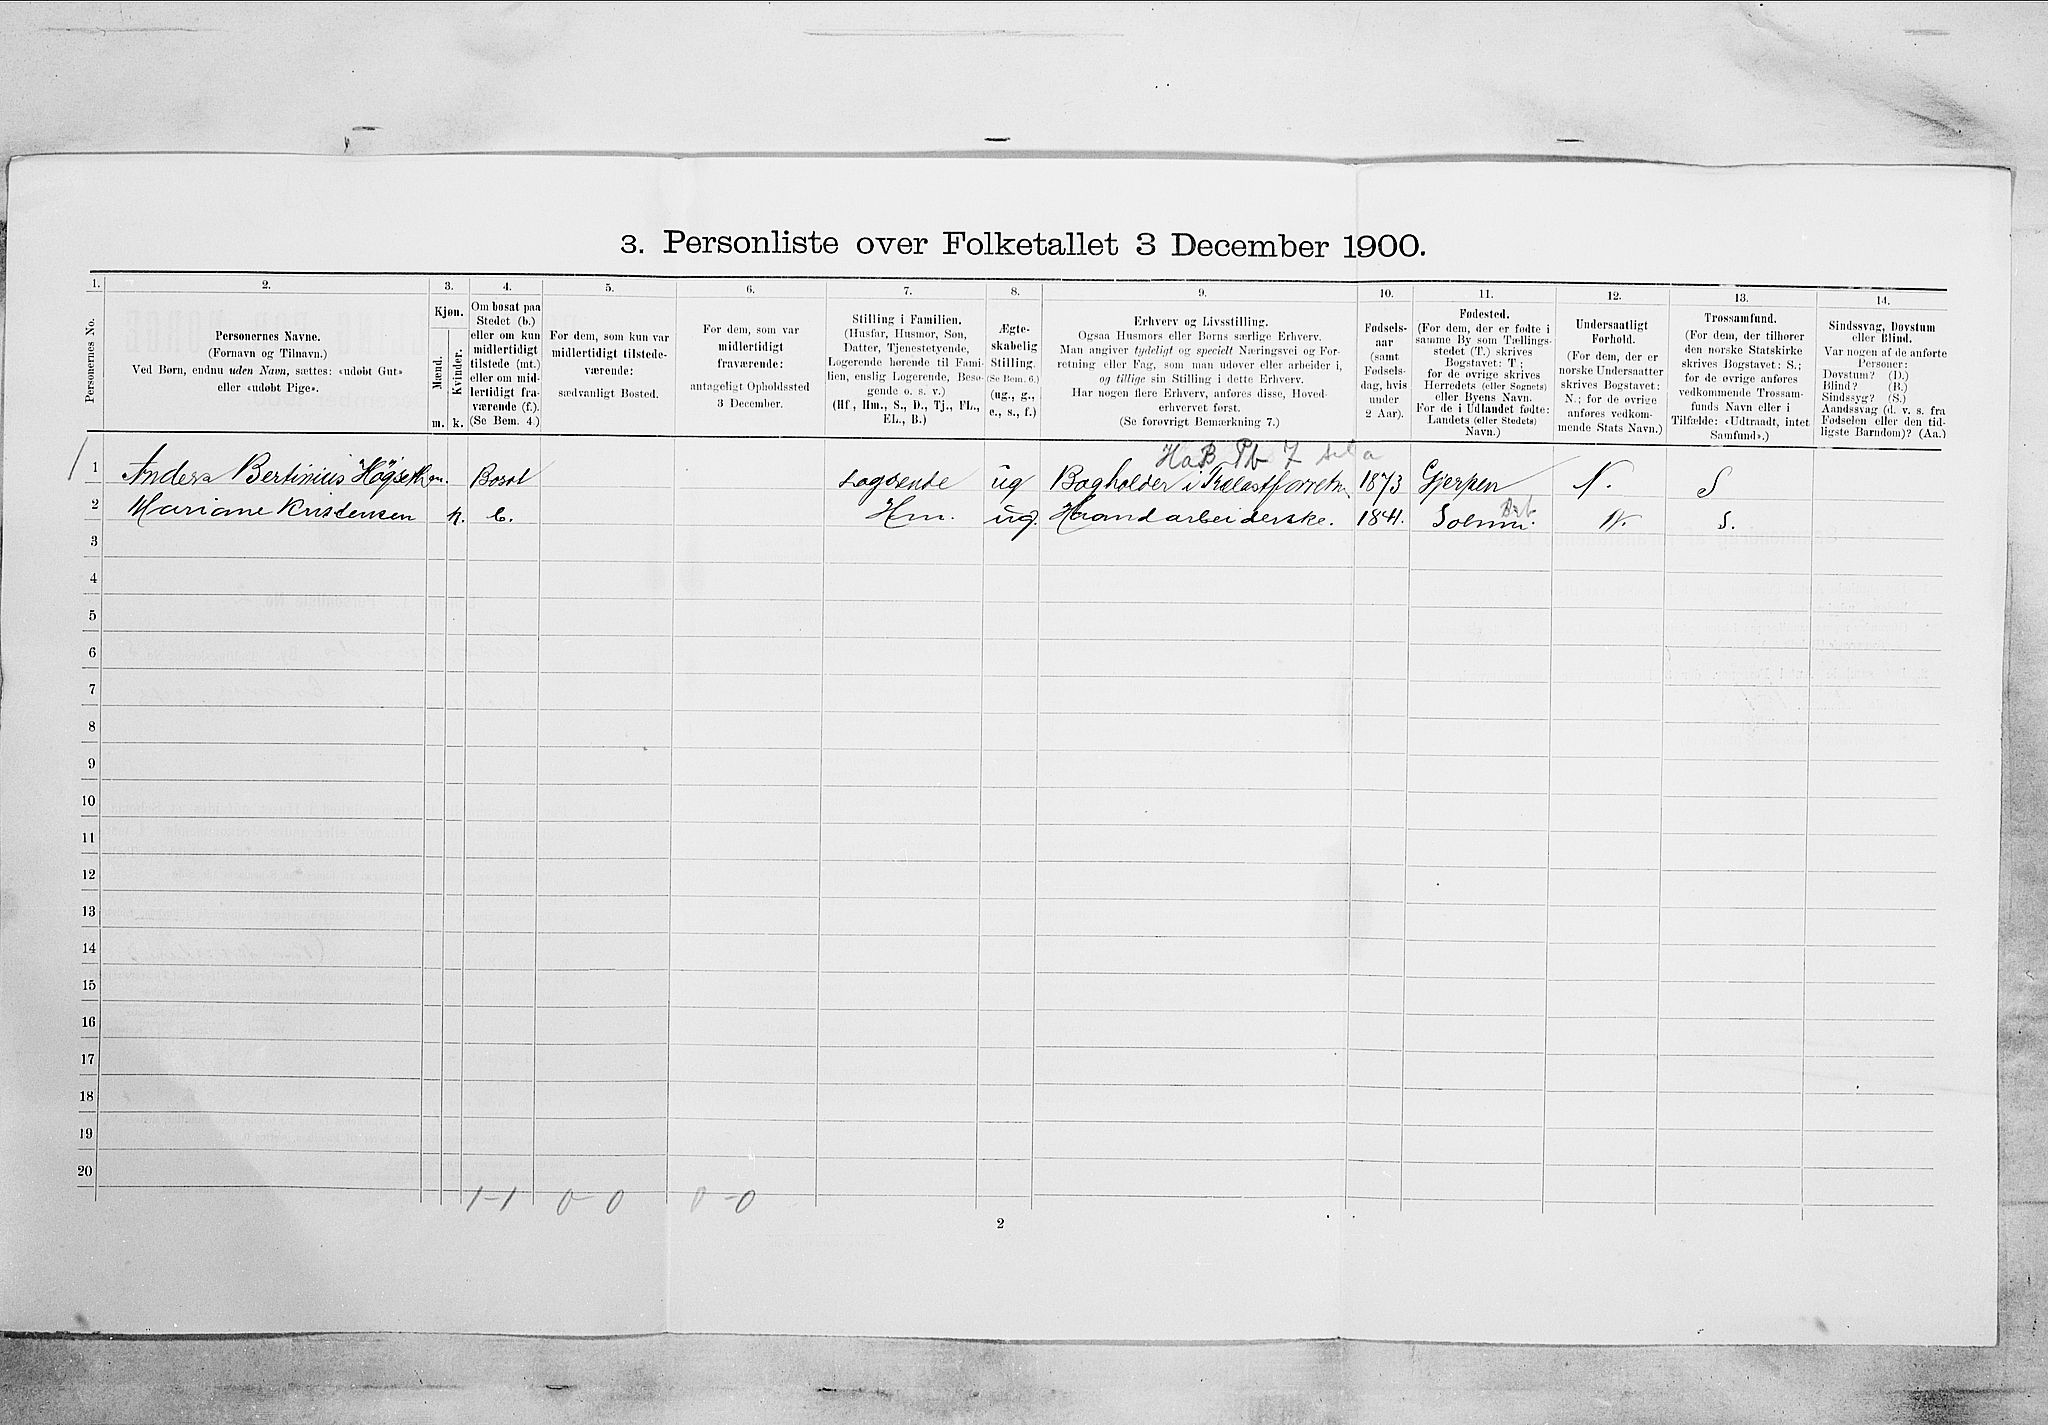 3. Personliste over Folketallet 3 December 1900.
1. 2. 3. 4. 5. 6. 7. 8. 9. 10. 11. 12. 13. 14.
Personernes No.
Personernes Navne.
(Fornavn og Tilnavn.)
Ved Børn, endnu uden Navn, sættes: «udøbt Gut»
eller «udøbt Pige».
Kjøn.
Mænd.
Kvinder.
m. k.
Om bosat paa
Stedet (b.)
eller om kun
midlertidigt
tilstede (mt.)
eller om mid-
lertidigt fra-
værende (f.).
(Se Bem. 4.)
For dem, som kun var
midlertidigt tilstede-
værende:
sædvanligt Bosted.
For dem, som var
midlertidigt
fraværende:
antageligt Opholdssted
3 December.
Stilling i Familien.
(Husfar, Husmor, Søn,
Datter, Tjenestetyende,
Logerende hørende til Fami-
lien, enslig Logerende, Besø-
gende o. s. v.)
(Hf., Hm., S., D., Tj., FL.,
EL., B.)
Ægte-
skabelig
Stilling.
(Se Bem. 6.)
(ug., g.,
e., s., f.)
Erhverv og Livsstilling.
Ogsaa Husmors eller Børns særlige Erhverv.
Man angiver tydeligt og specielt Næringsvei og For-
retning eller Fag, som man udøver eller arbeider i,
og tillige sin Stilling i dette Erhverv.
Har nogen flere Erhverv, anføres disse, Hoved-
erhvervet først.
(Se forøvrigt Bemærkning 7.)
Fødsels-
aar
(samt
Fødsels-
dag, hvis
under
2 Aar).
Fødested.
(For dem, der er fødte i
samme By som Tællings-
stedet (T.) skrives
Bogstavet: T;
for de øvrige skrives
Herredets (eller Sognets)
eller Byens Navn.
For de i Udlandet fødte:
Landets (eller Stedets)
Navn.)
Undersaatligt
Forhold.
(For dem, der er
norske Undersaatter
skrives Bogstavet:
N.; for de øvrige
anføres vedkom-
mende Stats Navn.)
Trossamfund.
(For dem, der tilhører
den norske Statskirke
skrives Bogstavet: S.;
for de øvrige anføres
vedkommende Trossam-
funds Navn eller i
Tilfælde: «Udtraadt, intet
Samfund».)
Sindssvag, Døvstum
eller Blind.
Var nogen af de anførte
Personer:
Døvstum? (D.)
Blind? (B.)
Sindssyg? (S.)
Aandssvag (d. v. s. fra
Fødselen eller den tid-
ligste Barndom)? (Aa.)
1 Anders Bertinius Högseth m. Bosat Logerende ug Bogholder i Trælastforretn. 1873 Gjerpen N. S
2 Mariane Kristensen k. b. Hm. ug. Haandarbeiderske. 1841. N. S.
3
4
5
6
7
8
9
10
11
12
13
14
15
16
17
18
19
20
1-1 0-0 0-0
2